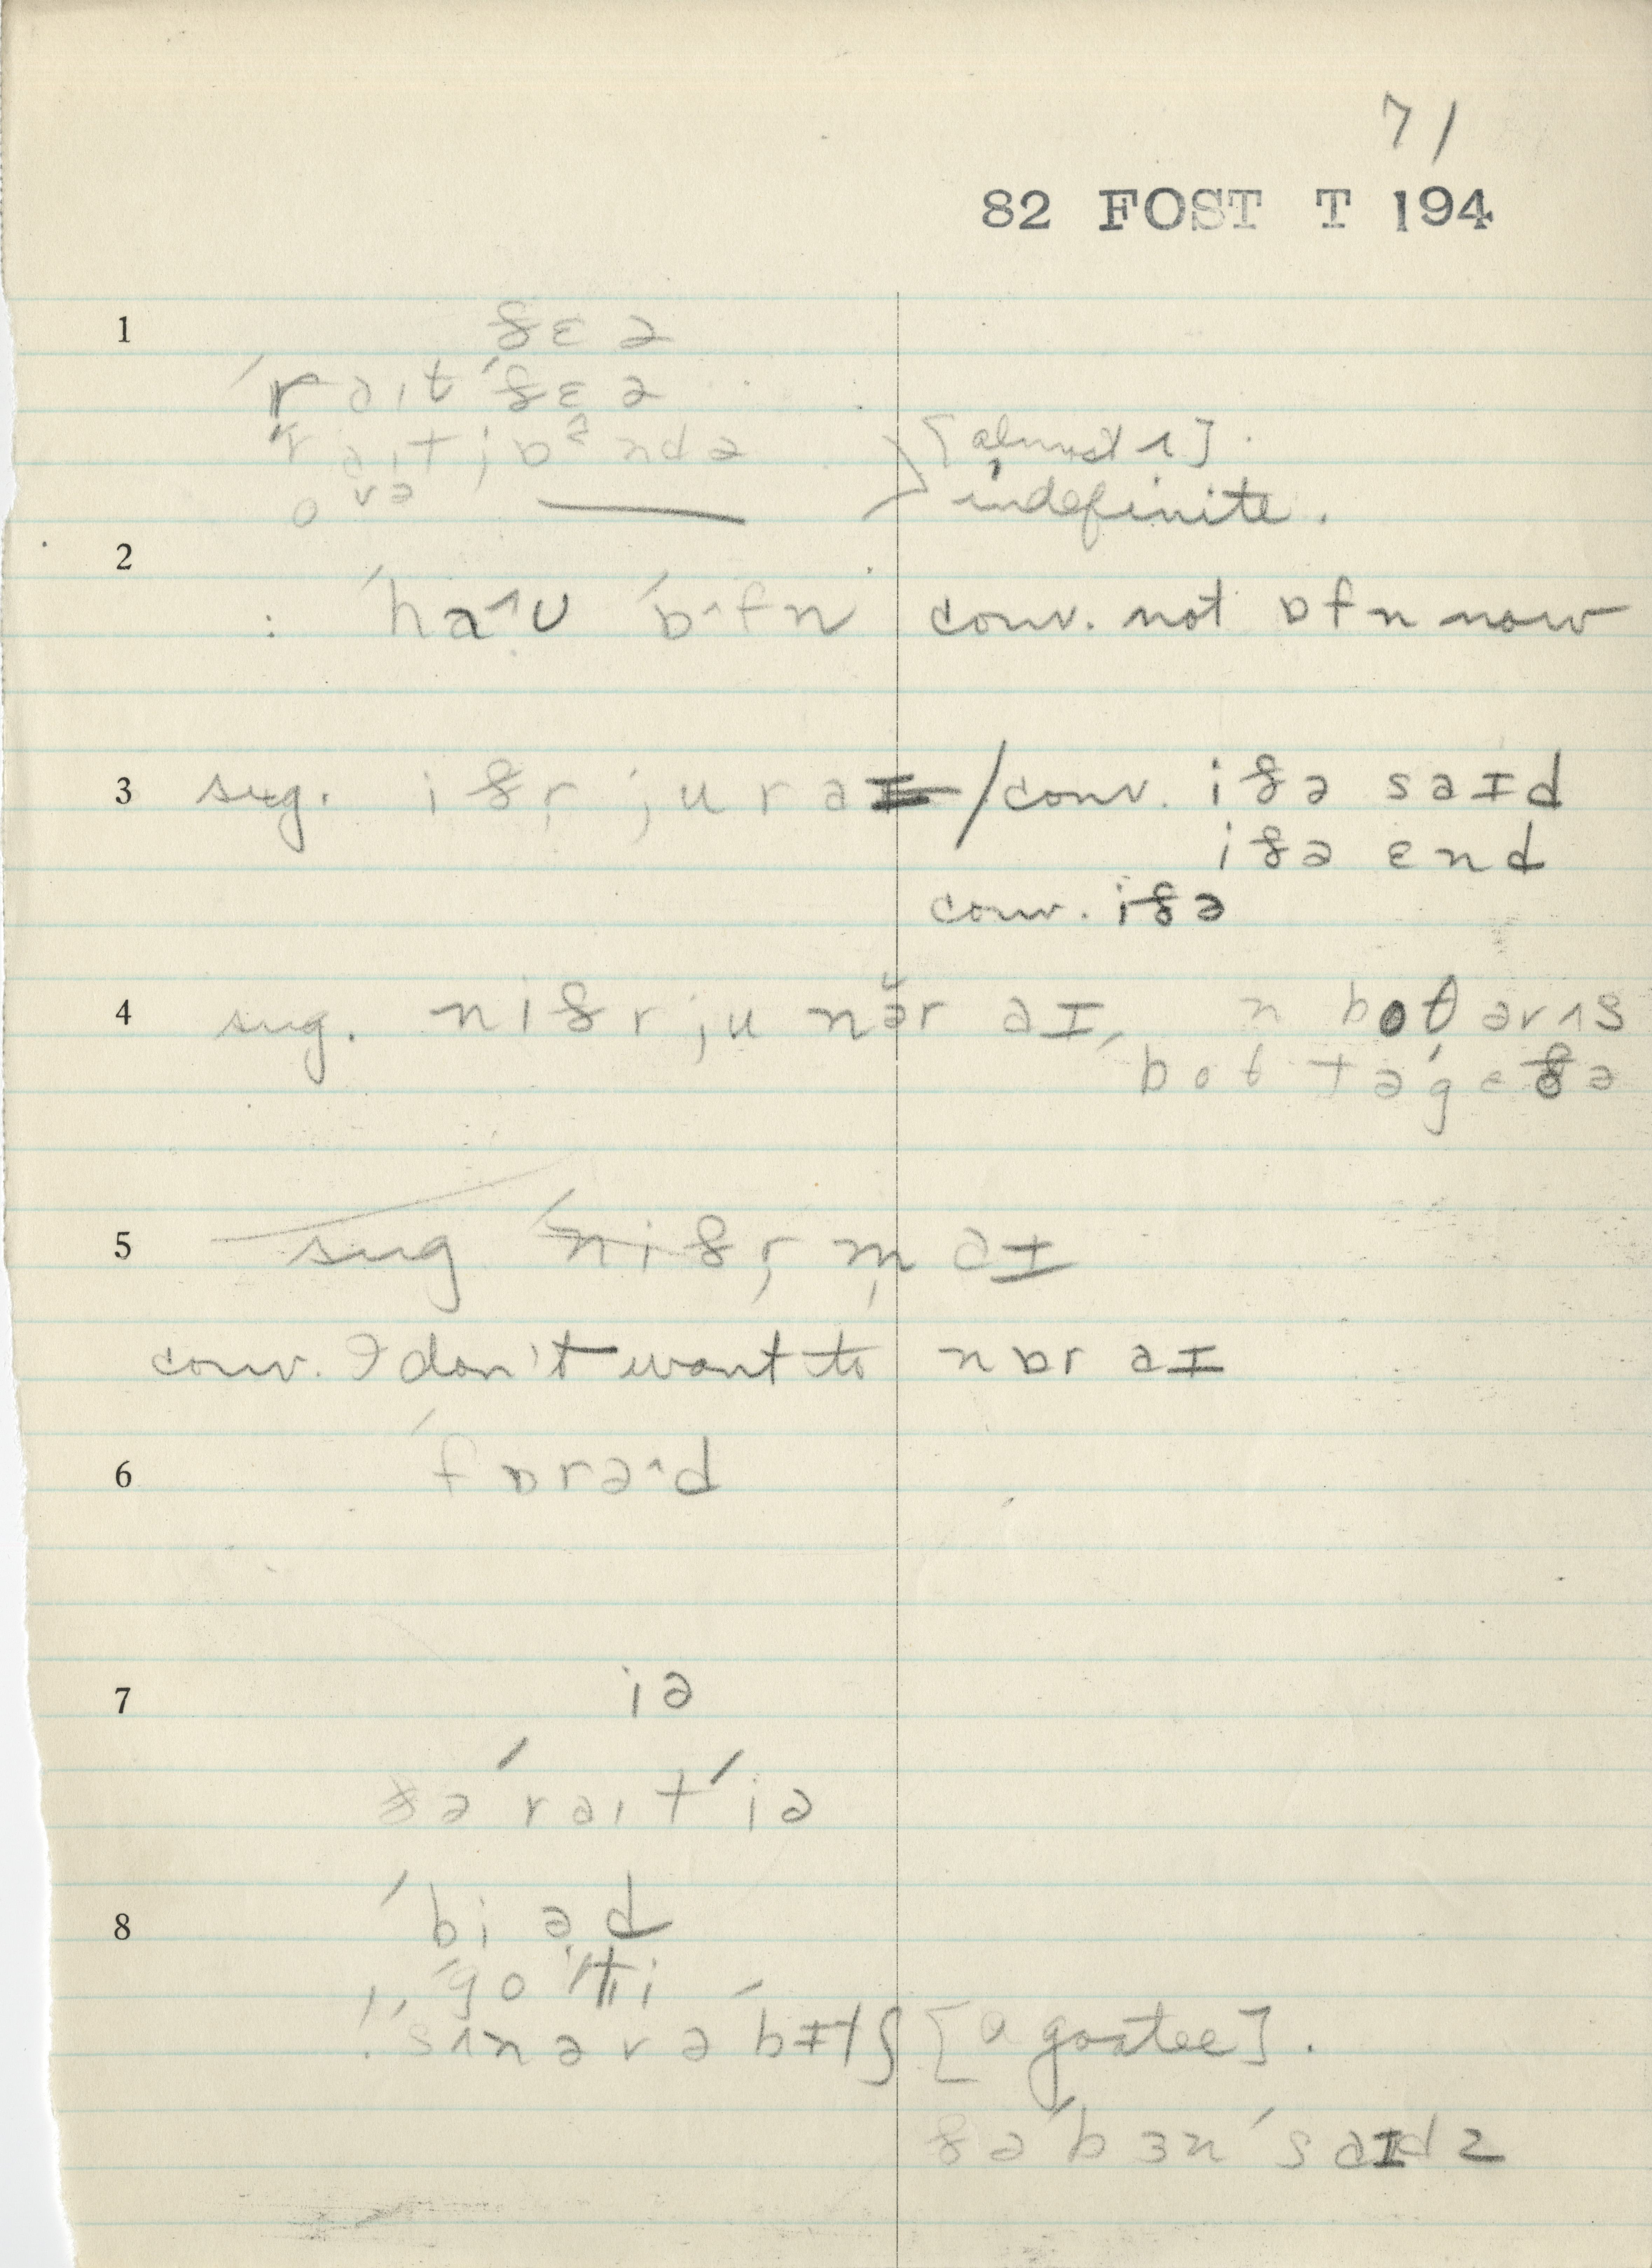 71
82 FOST T 194
1 ðɛə
ˈrəɪtˈðɛə
rəɪt jɒndə [almost ɪ].
ovə indefinite.
2 : ˈhaˑʊ ˈɒˑfn conv. not ɒfn now
3 sug. iðr̩ ju r / conv. iðə saɪd
iðə ɛnd
conv. iðə
4 sug. niðr ju nə̆r əɪ, n boθ
ˈboθ təˈgɛðə
5 sug ˈniðr̩ m̩ əɪ
conv. I don't want to nɒr əɪ
6 ˈfɒrəˑd
7 iə
ðəˈraɪtˈiə
8 ˈbiəd
ˈgoˈti
[a goatee].
ðəˈbɜnˈsaɪdz